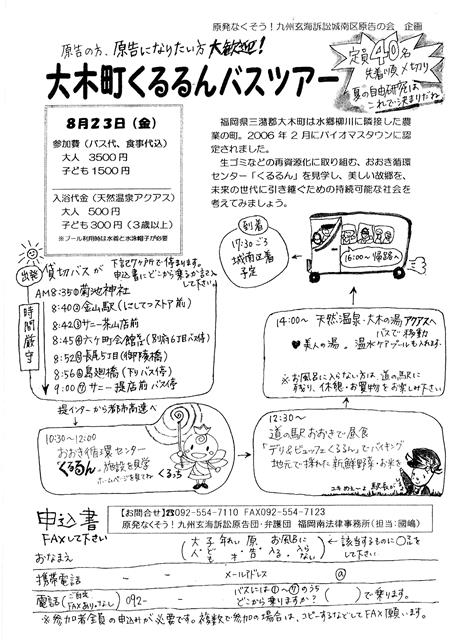 原発なくそう！九州玄海訴訟城南区原告の会　企画
原告の方、原告になりたい方 大歓迎！
定員40名
先着順〆切り
夏の自由研究は
これで決まりだね
大木町くるるんバスツアー
8月23日（金）
参加費（バス代、食事代込）
大人　3500円
子ども1500円
入浴代金（天然温泉アクアス）
大人　500円
子ども300円（3歳以上）
※プール利用時は水着と水泳帽子が必要
福岡県三潴郡大木町は水郷柳川に隣接した農
業の町。2006年2月にバイオマスタウンに認
定されました。
生ゴミなどの再資源化に取り組む、おおき循環
センター「くるるん」を見学し、美しい故郷を、
未来の世代に引き継ぐための持続可能な社会を
考えてみましょう。
到着
17:30ごろ
城南区着
予定
16:00〜 帰路へ
出発
貸切バスが
下記7ヶ所で停まります。
申込書にどこから乗るか記入
して下さい。
時間厳守
AM8:35①菊池神社
8:40②金山駅（にしてつストア前）
8:42③サニー茶山店前
8:45④六ケ町会館前（別府6丁目バス停）
8:52⑤長尾5丁目（御陵橋）
8:56⑥島廻橋（下りバス停）
9:00⑦サニー堤店前バス停
堤インターから都市高速へ
14:00〜 天然温泉・大木の湯アクアスへ
バスで移動
♥美人の湯。温水プールも入れます。
※お風呂に入らない方は、道の駅に
残り、休憩・お買物をお楽しみ下さい
10:30〜12:00
おおき循環センター
くるるん 施設を見学
ホームページを見てね
くるっち
12:30〜
道の駅おおきで昼食
「デリ&ビュッフェくるるん」でバイキング
地元で採れた新鮮野菜・お米を
駅長が
申込書
FAXして下さい
【お問合せ】☎092-554-7110 FAX092-554-7123
原発なくそう！九州玄海訴訟原告団・弁護団　福岡南法律事務所（担当：國嶋）
おなまえ
大人 子ども 年れい 原告 お風呂に 入る・入らない
←該当するものに○話を
して下さい
携帯電話　－　－　メールアドレス　@
電話（ご自宅 FAXあり・なし）092－
バスには①〜⑦のうち
どこから乗りますか？（　）で乗ります。
※参加者全員の申込みが必要です。複数で参加の場合は、コピーするなどしてFAX願います。